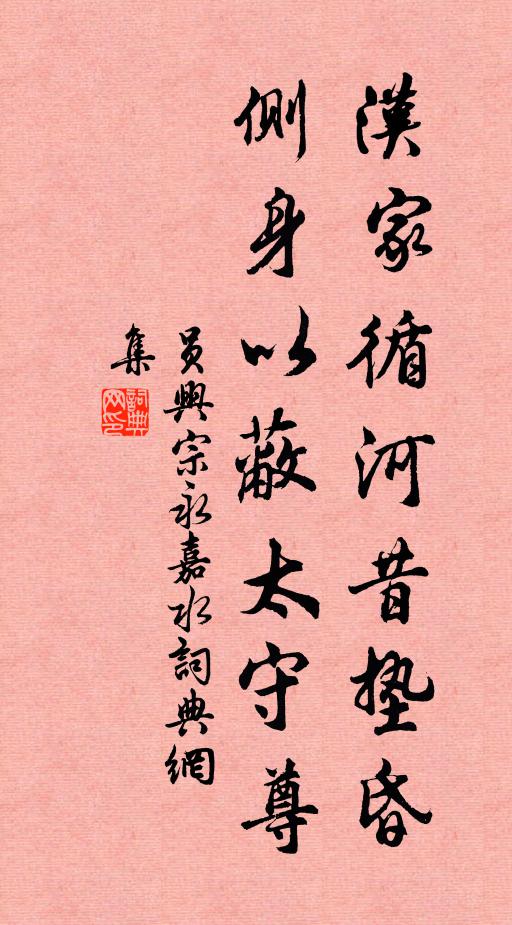 漢家循河昔墊昏
側身以蔽太守尊
員興宗永嘉水詞典網
集
詞典網印